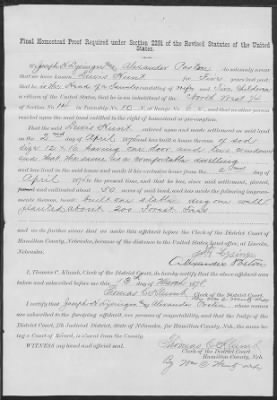 Final Homestead Proof Required under Section 2291 of the Revised Statutes of the United
States.
We, Joseph H. Alexander do solemnly swear
that we have known Lewis Hunt for Five years last past;
that he is the Head of a family consisting of Wife and Five Children
a citizen of the United States; that he is an inhabitant of the North West 1/4
of Section No. 14 in Township No. 10 of Range No. 6 and that no other person
resided upon the said land entitled to the right of Homestead or Pre-emption.
That the said Lewis Hunt entered upon and made settlement on said land
on the day of April and has built a house thereon of sod
12 x 16 having one door and two windows
and that the same is a comfortable dwelling
and has lived in the said house and made it his exclusive home from the day of
April to the present time, and that he has, since said settlement, plowed,
and cultivated about acres of said land, and has made the following improvements
thereon, to wit: built one stable dug one well
planted about 200 Forest trees
and we further say that we make this affidavit before the Clerk of the District Court of
Hamilton County, Nebraska, because of the distance to the United States land office, at Lincoln,
Nebraska.
Alexander
I, Thomas C. Klumb, Clerk of the District Court, do hereby certify that the above affidavit was
taken and subscribed before me this day of March
Thomas C. Klumb Clerk of the District Court.
I certify that Joseph H. and Alexander whose names
are subscribed to the foregoing affidavit, are persons of respectability, and that the Judge of the
District Court, Judicial District, state of Nebraska, for Hamilton County, Neb., the same being
a Court of Record, is absent from the County.
WITNESS my hand and official seal.
Thomas C. Klumb
Clerk of the District Court
Hamilton County, Neb.
By Wm